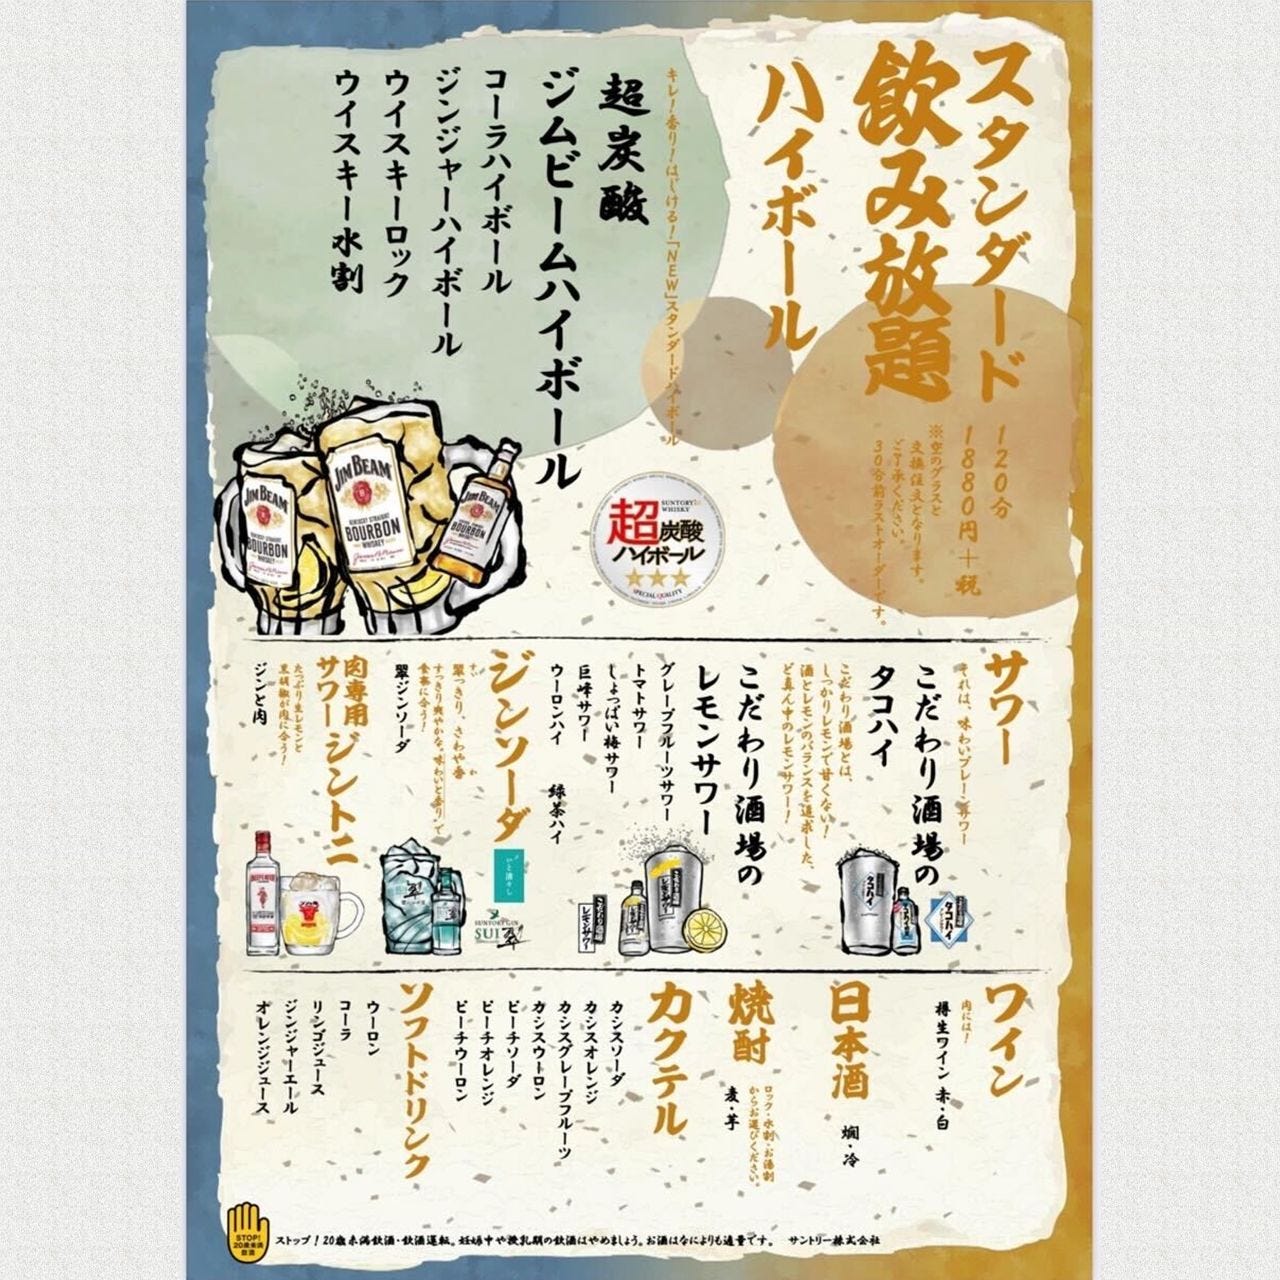 スタンダード
飲み放題
120分
1880円+税
※空のグラスと
交換注文となります。
ご了承ください。
30分前ラストオーダーです。
ハイボール
キレ！香り！はじける！「NEW」スタンダードハイボール
超炭酸
ジムビームハイボール
コーラハイボール
ジンジャーハイボール
ウイスキーロック
ウイスキー水割
JIM BEAM
KENTUCKY STRAIGHT
BOURBON
WHISKEY
JIM BEAM
KENTUCKY STRAIGHT
BOURBON
WHISKEY
JIM BEAM
BOURBON
SUNTORY
WHISKY
超炭酸
ハイボール
SPECIAL QUALITY
サワー
それは、味わいプレーンサワー
こだわり酒場の
タコハイ
こだわり酒場とは、
しっかりレモンで甘くない！
酒とレモンのバランスを追求した、
ど真ん中のレモンサワー！
こだわり酒場の
レモンサワー
グレープフルーツサワー
トマトサワー
しょっぱい梅サワー
巨峰サワー
ウーロンハイ 緑茶ハイ
タコハイ
タコハイ
タコハイ
レモンサワー
レモンサワー
ジンソーダ
翠っきり、さわや香
すい か
すっきり爽やかな、味わいと香りで
食事に合う！
翠ジンソーダ
いと清々し
SUNTORY GIN
SUI 翠
肉専用
サワージントニ
たっぷり生レモンと
黒胡椒が肉に合う！
ジンと肉
BEEFEATER
ワイン
肉には！
樽生ワイン 赤・白
日本酒
燗・冷
焼酎
ロック・水割・お湯割
からお選びください。
麦・芋
カクテル
カシスソーダ
カシスオレンジ
カシスグレープフルーツ
カシスウーロン
ピーチソーダ
ピーチオレンジ
ピーチウーロン
ソフトドリンク
ウーロン
コーラ
リンゴジュース
ジンジャーエール
オレンジジュース
STOP!
20歳未満
飲酒
ストップ！20歳未満飲酒・飲酒運転。妊娠中や授乳期の飲酒はやめましょう。お酒はなによりも適量です。 サントリー株式会社